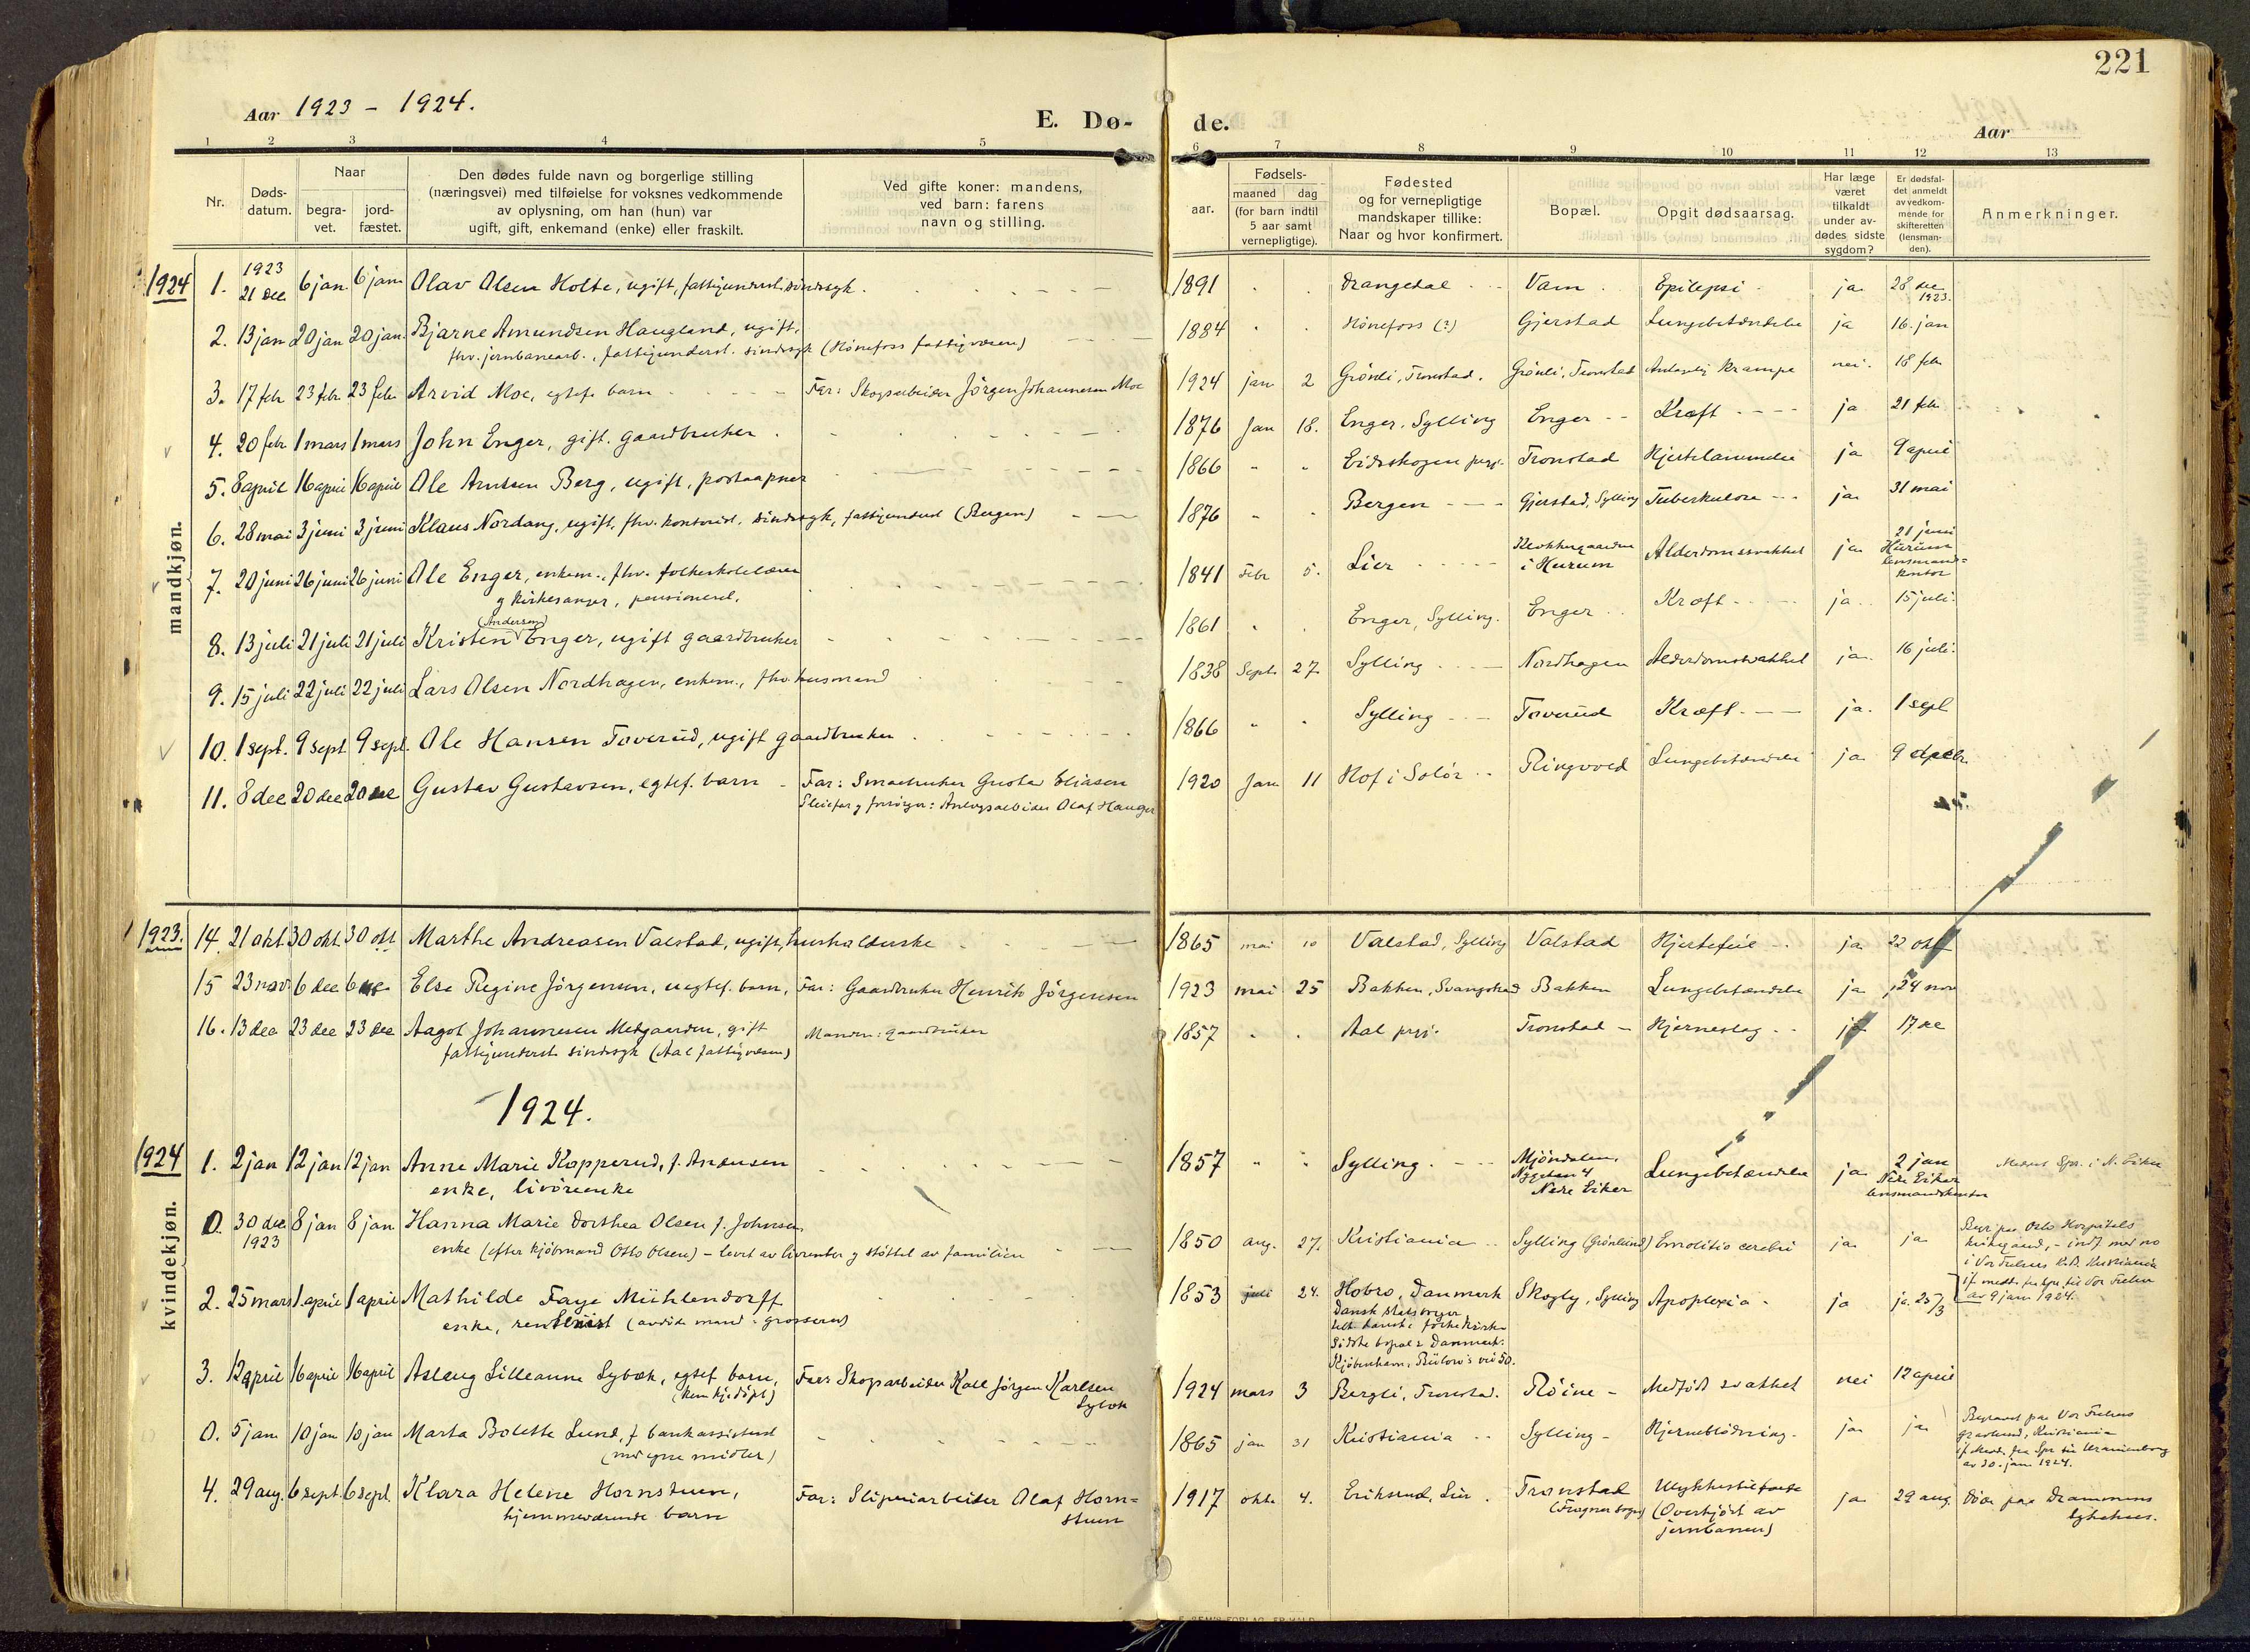 221
Aar 1923 - 1924.
E. Dø-
de.
Aar
1 2 3 4 5
6 7 8 9 10 11 12 13
Nr.
Døds-
datum.
Naar
begra-
vet.
jord-
fæstet.
Den dødes fulde navn og borgerlige stilling
(næringsvei) med tilføielse for voksnes vedkommende
av oplysning, om han (hun) var
ugift, gift, enkemand (enke) eller fraskilt.
Ved gifte koner: mandens,
ved barn: farens
navn og stilling.
Fødsels-
aar.
maaned dag
(for barn indtil
5 aar samt
vernepligtige).
Fødested
og for vernepligtige
mandskaper tillike:
Naar og hvor konfirmert.
Bopæl.
Opgit dødsaarsag.
Har læge
været
tilkaldt
under av-
dødes sidste
sygdom?
Er dødsfal-
det anmeldt
av vedkom-
mende for
skifteretten
(lensman-
den).
Anmerkninger.
mandkjøn.
1924 1. 1923 21 dec 6 jan 6 jan Olav Olsen Holte, ugift, fattigunderst. sindssyk. 1891 Drangedal Vam Epilepsi ja 28 dec 1923.
2. 13 jan 20 jan 20 jan Bjarne Amundsen Haugland, ugift, 1884 Hönefoss (?) Gjerstad Lungebetændelse ja 16. jan
fhv. jernbanearb., fattigunderst. sindssyk (Hönefoss fattigvæsen)
3. 17 febr 23 febr 23 febr Arvid Moe, egtef. barn Far: Skogsarbeider Jörgen Johannesen Moe 1924 jan 2 Grönli, Tronstad. Grönli, Tronstad Krampe nei. 18 feb
4. 20 febr 1 mars 1 mars John Enger, gift. gaardbruker 1876 Jan 18. Enger, Sylling Enger Kræft ja 21 feb
5. 8 april 16 april 16 april Ole Arntsen Berg, ugift, postaapner 1866 Eidsskogen prgj. Tronstad Hjertelammelse ja 9 april
6. 28 mai 3 juni 3 juni Klaus Nordang, ugift, fhv. kontorist, sindssyk, fattigunderst (Bergen) 1876 Bergen Gjerstad, Sylling Tuberkulose ja 31 mai
7. 20 juni 26 juni 26 juni Ole Enger, enkem., fhv. folkeskolelærer 1841 Febr 5. Lier Klokkergaarden i Hurum Alderdomssvakhet ja 21 juni Hurum lensmands= kontor
og kirkesanger, pensioneret.
8. 13 juli 21 juli 21 juli Kristen (Andersen) Enger, ugift gaardbruker 1861 Enger, Sylling. Enger Kræft ja 15 juli.
9. 15 juli 22 juli 22 juli Lars Olsen Nordhagen, enkem., fhv. husmand 1838 Sept. 27. Sylling Nordhagen Alderdomsvakhet ja. 16 juli.
10. 1 sept. 9 sept. 9 sept. Ole Hansen Toverud, ugift gaardbruker 1866 Sylling Toverud Kræft ja. 1 sept
11. 8 dec 20 dec 20 dec Gustav Gustavsen, egtef. barn Far: Smaabruker Gustav Eliasen 1920 Jan 11 Hof i Solör Ringvold Lungebetændelse ja 9 decbr.
Pleiefar og forsörger: Anlægsarbeider Olaf Hauger
1923. 14. 21 okt 30 okt. 30 okt Marthe Andreasen Valstad, ugift, husholderske 1865 mai 10 Valstad, Sylling Valstad Hjertefeil ja 22 okt
15 23 nov 6 dec 6 dec Else Regine Jörgensen, uegtef. barn, Far: Gaardbruker Henrik Jörgensen 1923 mai 25 Bakken, Svangstrad Bakken Lungebetændelse ja 24 nov
16. 13 dec 23 dec 23 dec Aagot Johannesen Medgaarden, gift Manden: gaardbruker 1857 Aal prgj. Tronstad Hjerneslag ja 17 dec
fattigunderst. sindssyk (Aal fattigvæsen)
1924.
kvindekjøn.
1924 1. 2 jan 12 jan 12 jan Anne Marie Kopperud, f. Andersen 1857 Sylling. Mjöndalen, Nygaten 4 Nedre Eiker Lungebetændelse ja 2 jan Nedre Eiker lensmandskontor
enke, livöreenke
0. 30 dec 1923 8 jan 8 jan Hanna Marie Dorthea Olsen f. Johnsen 1850 aug. 27. Kristiania Sylling (Grönlund) Emolitio cerebri ja ja
enke (efter kjöbmand Otto Olsen) - levet av livrenter og støttet av familien
2. 25 mars 1. april 1 april Mathilde Faye Mühlendorff 1853 juli 24. Hobro, Danmark Skogly, Sylling Apoplexia ja ja. 25/3
enke, rentenist (avdöde mand: grosserer)
Dansk statsborger
Sidste bopæl i Danmark:
Kjöbenhavn, Bülows vei 50.
av 9 jan 1924.
3. 12 april 16 april 16 april Aslaug Lilleanne Sylvok, egtef barn, Far: Skogsarbeider Karl Jörgen Karlsen 1924 mars 3 Bergli, Tronstad. Röine Medfödt svakhet nei 12 april
(hjemdöpt)
0. 5 jan 10 jan 10 jan Marta Bolette Lund, f. bankassistent 1865 jan 31 Kristiania Sylling Hjerneblödning. ja ja
(med egne midler)
Begravet paa Vor Frelsers
gravlund, Kristiania
av 30. jan 1924.
4. 29 aug. 6 sept. 6 sept. Klara Helene Hornstuen, Far: Sliperiarbeider Olaf Horn= stuen 1917 okt. 4. Eriksrud, Lier. Transtad (Frogner sogn) Ulykkestilfælde ja 29 aug. Döde paa Drammens
hjemmeværende barn (Overkjört av jernbanen) sykehus.